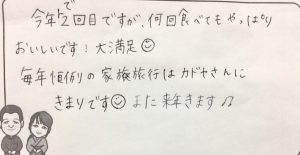 今年で2回目ですが、何回食べてもやっぱり
おいしいです！大満足☺
毎年恒例の家族旅行はカドヤさんに
きまりです☺また来年きます♫